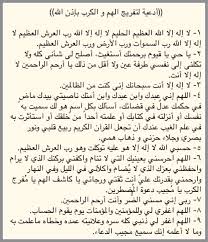 ((أدعية لتفريج الهم و الكرب بإذن الله))
١- لا إله إلا الله العظيم الحليم لا إله إلا الله رب العرش العظيم لا
إله إلا الله رب السموات ورب الأرض ورب العرش العظيم.
٢- يا حي يا قيوم برحمتك أستغيث. أصلح لي شأني كله ولا
تكلني إلى نفسي طرفة عين ولا أقل من ذلك يا أرحم الراحمين لا
إله إلا أنت سبحانك إني كنت من الظالمين.
٣- اللهم إني عبدك وابن عبدك وابن أمتك ناصيتي بيدك ماض
في حكمك عدل في قضائك. أسألك بكل اسم هو لك سميت به
نفسك أو أنزلته في كتابك أو علمته أحدا من خلقك أو استأثرت به
في علم الغيب عندك أن تجعل القرآن الكريم ربيع قلبي ونور
بصري وجلاء حزني وذهاب همي.
٥- حسبي الله لا إله إلا هو عليه توكلت وهو رب العرش العظيم.
٦- اللهم احرسني بعينك التي لا تنام واكنفني بركنك الذي لا يرام
واحفظني بعزك الذي لا يضام واكلأني في الليل وفي النهار
وارحمني بقدرتك علي أنت ثقتي ورجائي يا كاشف الهم يا مفرج
الكرب يا مجيب دعوة المضطرين.
٧- ربي إني مسني الضر وأنت أرحم الراحمين.
٨- اللهم اغفر لي وللمؤمنين والمؤمنات يوم يقوم الحساب.
٩- اللهم اغفر لي ذنبي كله سره وعلانيته عمده وخطأه ماعلمت به
وما لا أعلمه إنك سميع مجيب الدعاء.